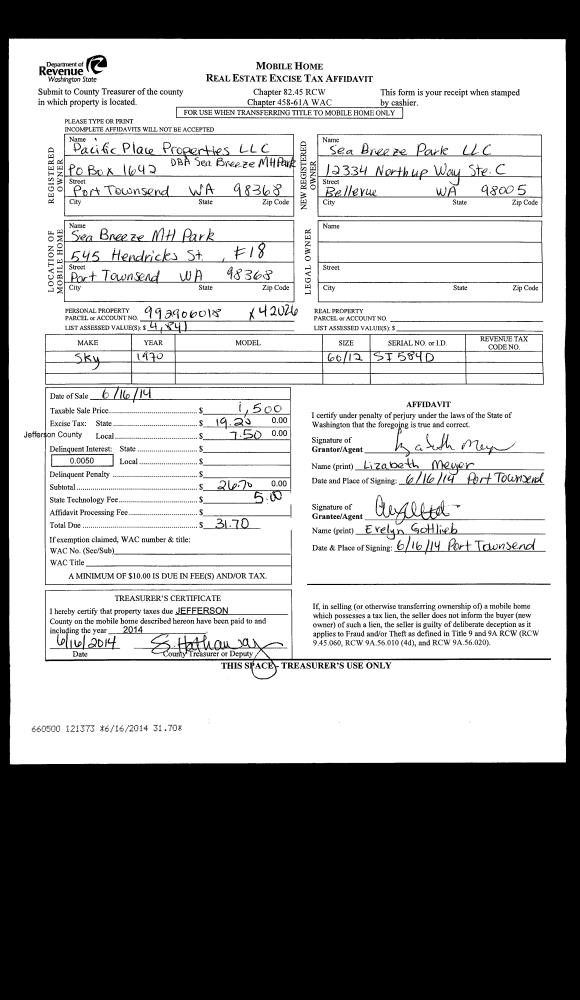 Department of
Revenue
Washington State
MOBILE HOME
REAL ESTATE EXCISE TAX AFFIDAVIT
Submit to County Treasurer of the county
in which property is located.
Chapter 82.45 RCW
Chapter 458-61A WAC
This form is your receipt when stamped
by cashier.
FOR USE WHEN TRANSFERRING TITLE TO MOBILE HOME ONLY
PLEASE TYPE OR PRINT
INCOMPLETE AFFIDAVITS WILL NOT BE ACCEPTED
REGISTERED OWNER
Name
Pacific Place Properties LLC
DBA Sea Breeze MH Park
PO Box 1642
Street
Port Townsend WA 98368
City State Zip Code
NEW REGISTERED OWNER
Name
Sea Breeze Park LLC
12334 Northup Way Ste. C
Street
Bellevue WA 98005
City State Zip Code
LOCATION OF MOBILE HOME
Name
Sea Breeze MH Park
545 Hendricks St. #F18
Street
Port Townsend WA 98368
City State Zip Code
LEGAL OWNER
Name
Street
City State Zip Code
PERSONAL PROPERTY
PARCEL or ACCOUNT NO. 992906018 x42026
LIST ASSESSED VALUE(S): $ 4,841
REAL PROPERTY
PARCEL or ACCOUNT NO.
LIST ASSESSED VALUE(S): $
MAKE YEAR MODEL SIZE SERIAL NO. or I.D. REVENUE TAX CODE NO.
Sky 1970 60/12 SI584D
Date of Sale 6/16/14
Taxable Sale Price $ 1,500
Excise Tax: State $ 19.20 0.00
Jefferson County Local $ 7.50 0.00
Delinquent Interest: State $
0.0050 Local $
Delinquent Penalty $
Subtotal $ 26.70 0.00
State Technology Fee $ 5.00
Affidavit Processing Fee $
Total Due $ 31.70
If exemption claimed, WAC number & title:
WAC No. (Sec/Sub)
WAC Title
A MINIMUM OF $10.00 IS DUE IN FEE(S) AND/OR TAX.
AFFIDAVIT
I certify under penalty of perjury under the laws of the State of
Washington that the foregoing is true and correct.
Signature of
Grantor/Agent
Name (print) Lizabeth Meyer
Date and Place of Signing: 6/16/14 Port Townsend
Signature of
Grantee/Agent
Name (print) Evelyn Gottlieb
Date & Place of Signing: 6/16/14 Port Townsend
TREASURER'S CERTIFICATE
I hereby certify that property taxes due JEFFERSON
County on the mobile home described hereon have been paid to and
including the year 2014
6/16/2014
Date County Treasurer or Deputy
If, in selling (or otherwise transferring ownership of) a mobile home
which possesses a tax lien, the seller does not inform the buyer (new
owner) of such a lien, the seller is guilty of deliberate deception as it
applies to Fraud and/or Theft as defined in Title 9 and 9A RCW (RCW
9.45.060, RCW 9A.56.010 (4d), and RCW 9A.56.020).
THIS SPACE - TREASURER'S USE ONLY
660500 121373 *6/16/2014 31.70*